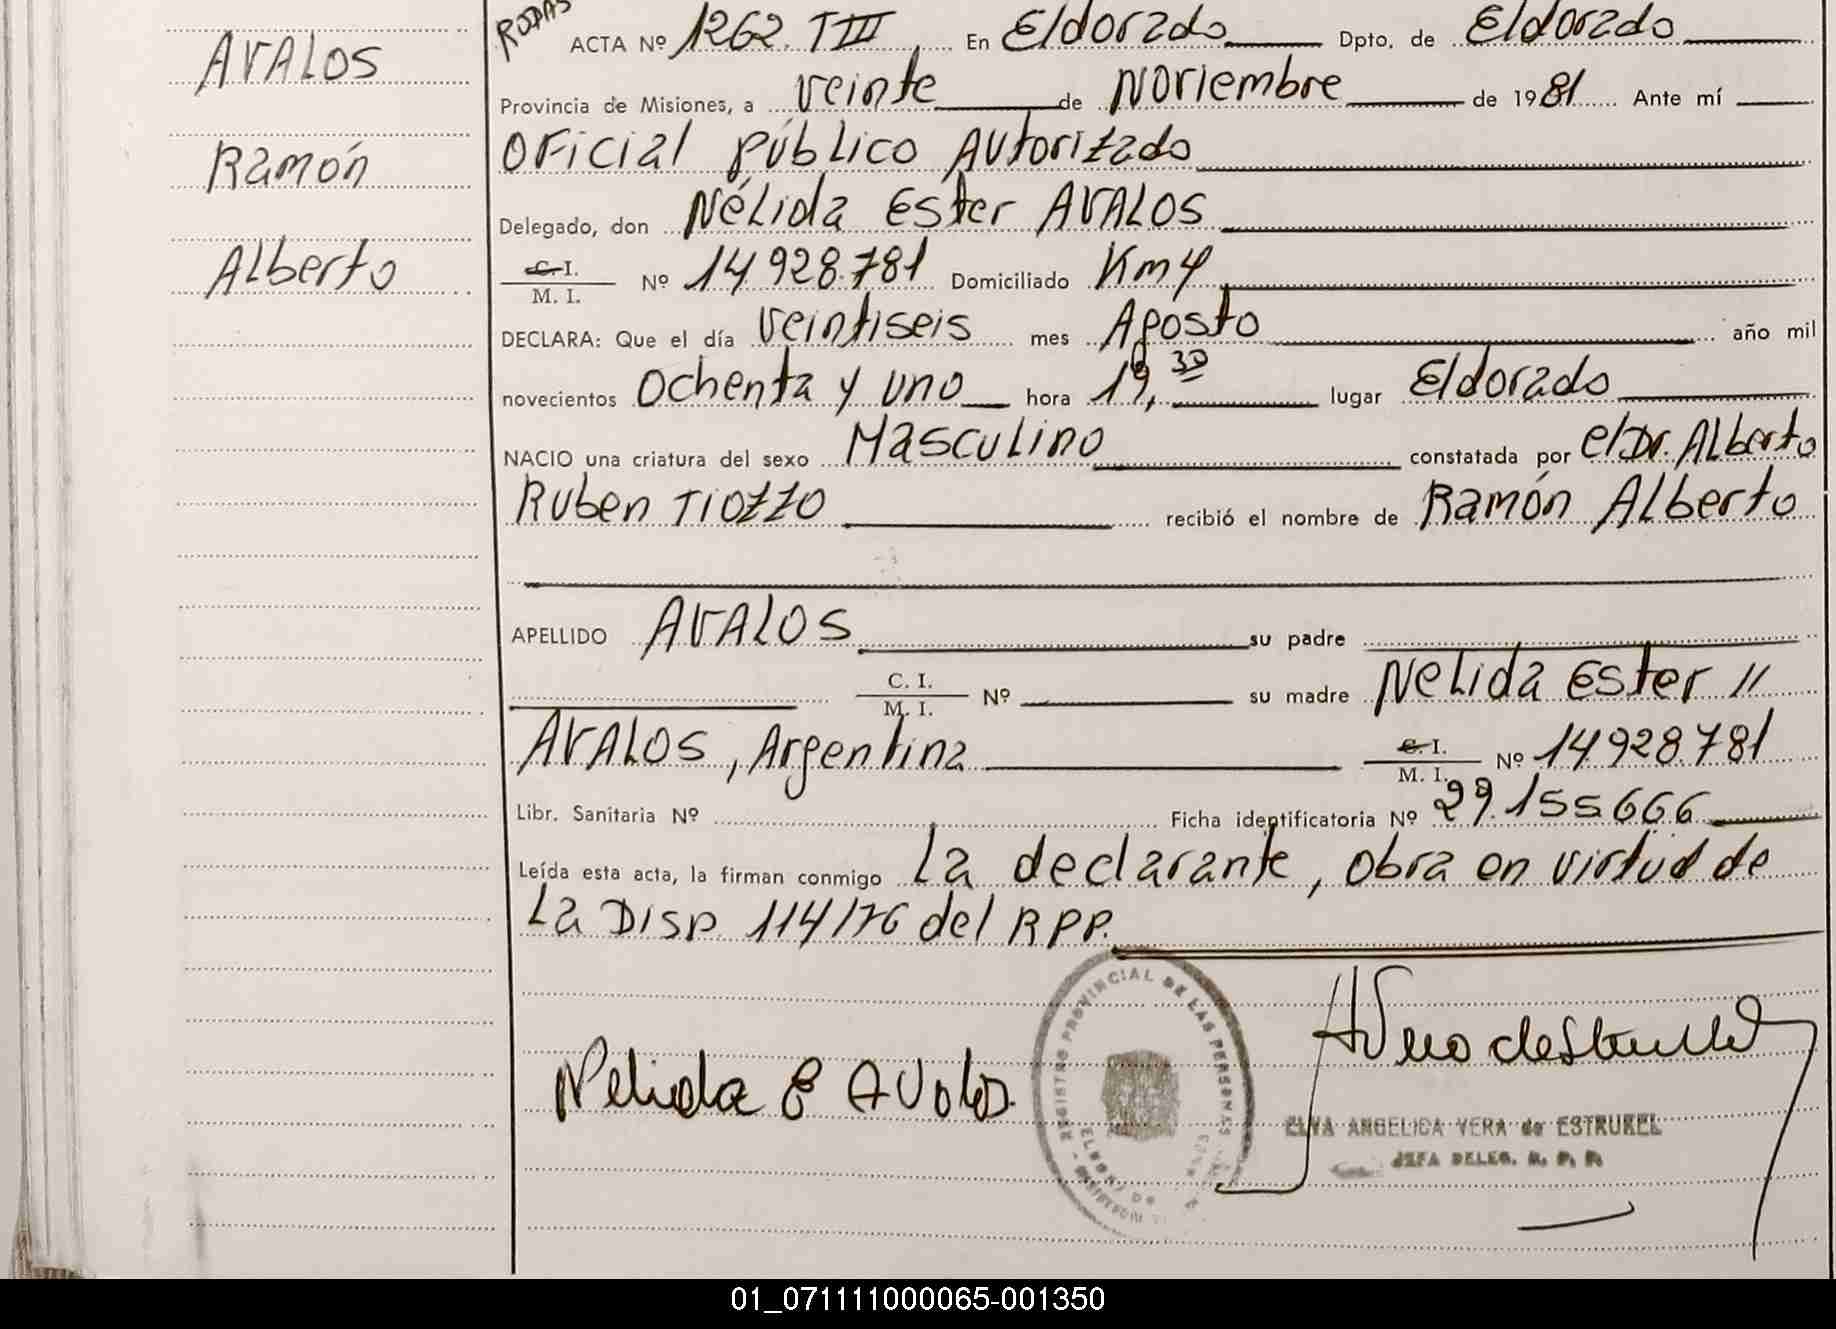 AVALOS
Ramón
Alberto
RODAS
ACTA Nº 1262. TIII En Eldorado Dpto. de Eldorado
Provincia de Misiones, a veinte de Noviembre de 1981 Ante mí
Oficial Público Autorizado
Delegado, don Nélida Ester AVALOS
C. I.
M. I. Nº 14.928.781 Domiciliado Km 4
DECLARA: Que el día veintiseis mes Agosto año mil
novecientos Ochenta y uno hora 19,30 lugar Eldorado
NACIO una criatura del sexo Masculino constatada por el Dr. Alberto
Ruben TIOZZO recibió el nombre de Ramón Alberto
APELLIDO AVALOS su padre
C. I.
M. I. Nº su madre Nelida Ester //
AVALOS, Argentina C. I.
M. I. Nº 14.928.781
Libr. Sanitaria Nº Ficha identificatoria Nº 29.155.666
Leída esta acta, la firman conmigo La declarante, obra en virtud de
La Disp. 114/76 del RPP.
REGISTRO PROVINCIAL DE LAS PERSONAS
Nelida E Avalos.
ELVA ANGELICA VERA de ESTRUKEL
JEFA DELEG. R. P. P.
01_071111000065-001350